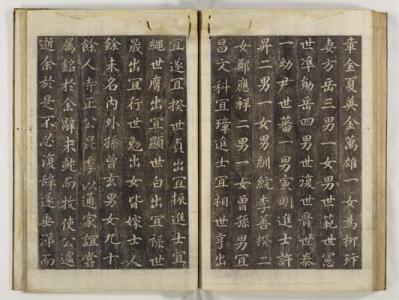 章金夏英金萬雄一女為柳玶
妻方岳三男一女男世範世憲
世準勛岳四男世復世晉世泰
一幼尹世蕃一男寅明進士許
昇二男一女男紃綂李善揆二
女鄭應祥二男一女曾孫男宜
昌文科宜璋進士宜相世亨出
宜遂宜揆世貞出宜振進士宜
繩世膺出宜顯世白出宜祿世
晟出宜行世勉出女皆嫁士人
餘未名內外孫曾玄男女九十
餘人寺正公昆季以通家誼當
屬銘於余辭未就而牧使公遽
逝余於是不忍復辭遂垂涕而